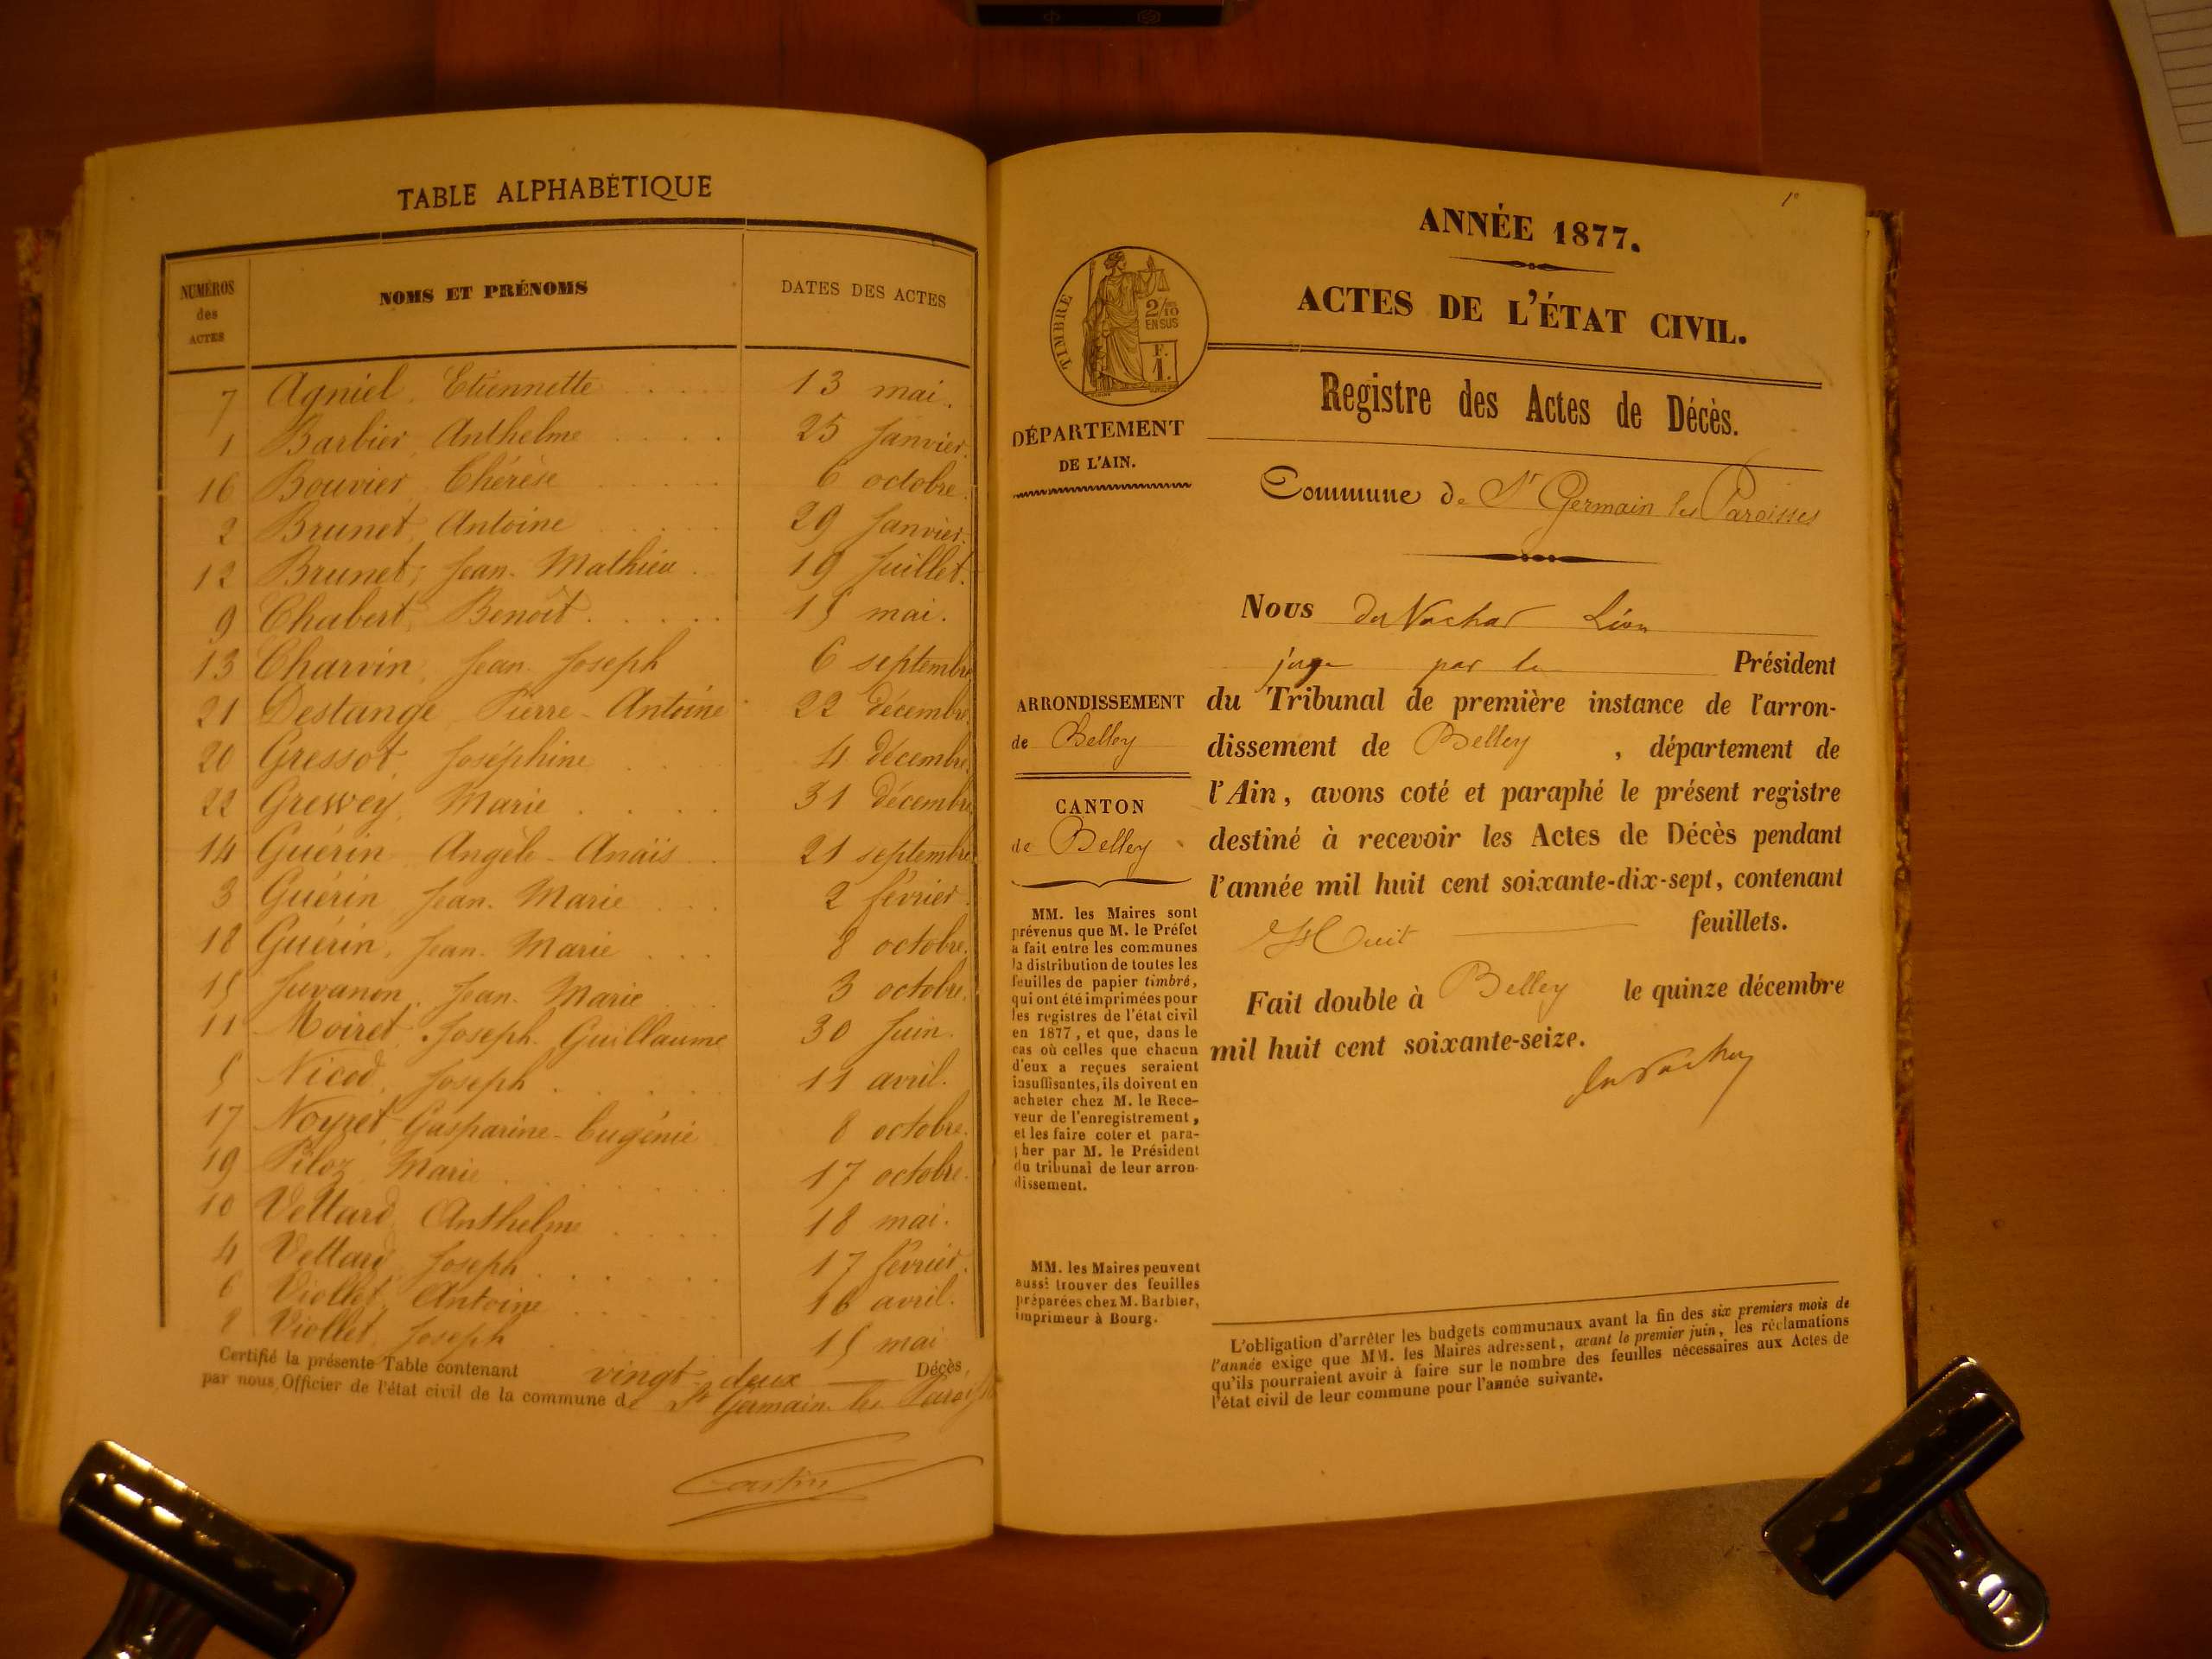 TABLE ALPHABÉTIQUE
NUMÉROS des ACTES
NOMS ET PRÉNOMS
DATES DES ACTES
7 Agniel, Etiennette 13 mai.
1 Barbier, Anthelme 25 Janvier.
16 Bouvier Thérèse 6 octobre.
2 Brunet, Antoine 29 Janvier.
12 Brunet, Jean-Mathieu 19 Juillet.
9 Chabert, Benoît 15 mai.
13 Charvin, Jean-Joseph 6 septembre
21 Destange Pierre-Antoine 22 décembre.
20 Gressot, Joséphine 4 décembre.
22 Marie 31 décembre
14 Guérin Angèle-Anaïs 21 septembre
3 Guérin Jean-Marie 2 février.
18 Guérin, Jean-Marie 8 octobre.
15 Juvanon, Jean-Marie 3 octobre.
11 Moiret, Joseph-Guillaume 30 Juin.
5 Nicod, Joseph 11 avril.
17 Noyret Gasparine-Eugénie 8 octobre.
19 Piloz, Marie 17 octobre.
10 Vettard, Anthelme 18 mai.
4 Vettard Joseph 17 février.
6 Viollet, Antoine 16 avril.
8 Viollet, Joseph 15 mai
Certifié la présente Table contenant vingt-deux Décès,
par nous, Officier de l'état civil de la commune de St Germain les Paroisses
1er
ANNÉE 1877.
ACTES DE L'ÉTAT CIVIL.
TIMBRE
2/10 EN SUS
F. 1.
Registre des Actes de Décès.
DÉPARTEMENT
DE L'AIN.
Commune de St Germain les Paroisses
Nous Léon
juge par le Président
du Tribunal de première instance de l'arron-
dissement de Belley, département de
l'Ain, avons coté et paraphé le présent registre
destiné à recevoir les Actes de Décès pendant
l'année mil huit cent soixante-dix-sept, contenant
Huit feuillets.
Fait double à Belley le quinze décembre
mil huit cent soixante-seize.
ARRONDISSEMENT
de Belley
CANTON
de Belley
MM. les Maires sont
prévenus que M. le Préfet
a fait entre les communes
la distribution de toutes les
feuilles de papier timbré,
qui ont été imprimées pour
les registres de l'état civil
en 1877, et que, dans le
cas où celles que chacun
d'eux a reçues seraient
insuffisantes, ils doivent en
acheter chez M. le Rece-
veur de l'enregistrement,
et les faire coter et para-
pher par M. le Président
du tribunal de leur arron-
dissement.
MM. les Maires peuvent
aussi trouver des feuilles
préparées chez M. Barbier,
imprimeur à Bourg.
L'obligation d'arrêter les budgets communaux avant la fin des six premiers mois de
l'année exige que MM. les Maires adressent, avant le premier juin, les réclamations
qu'ils pourraient avoir à faire sur le nombre des feuilles nécessaires aux Actes de
l'état civil de leur commune pour l'année suivante.